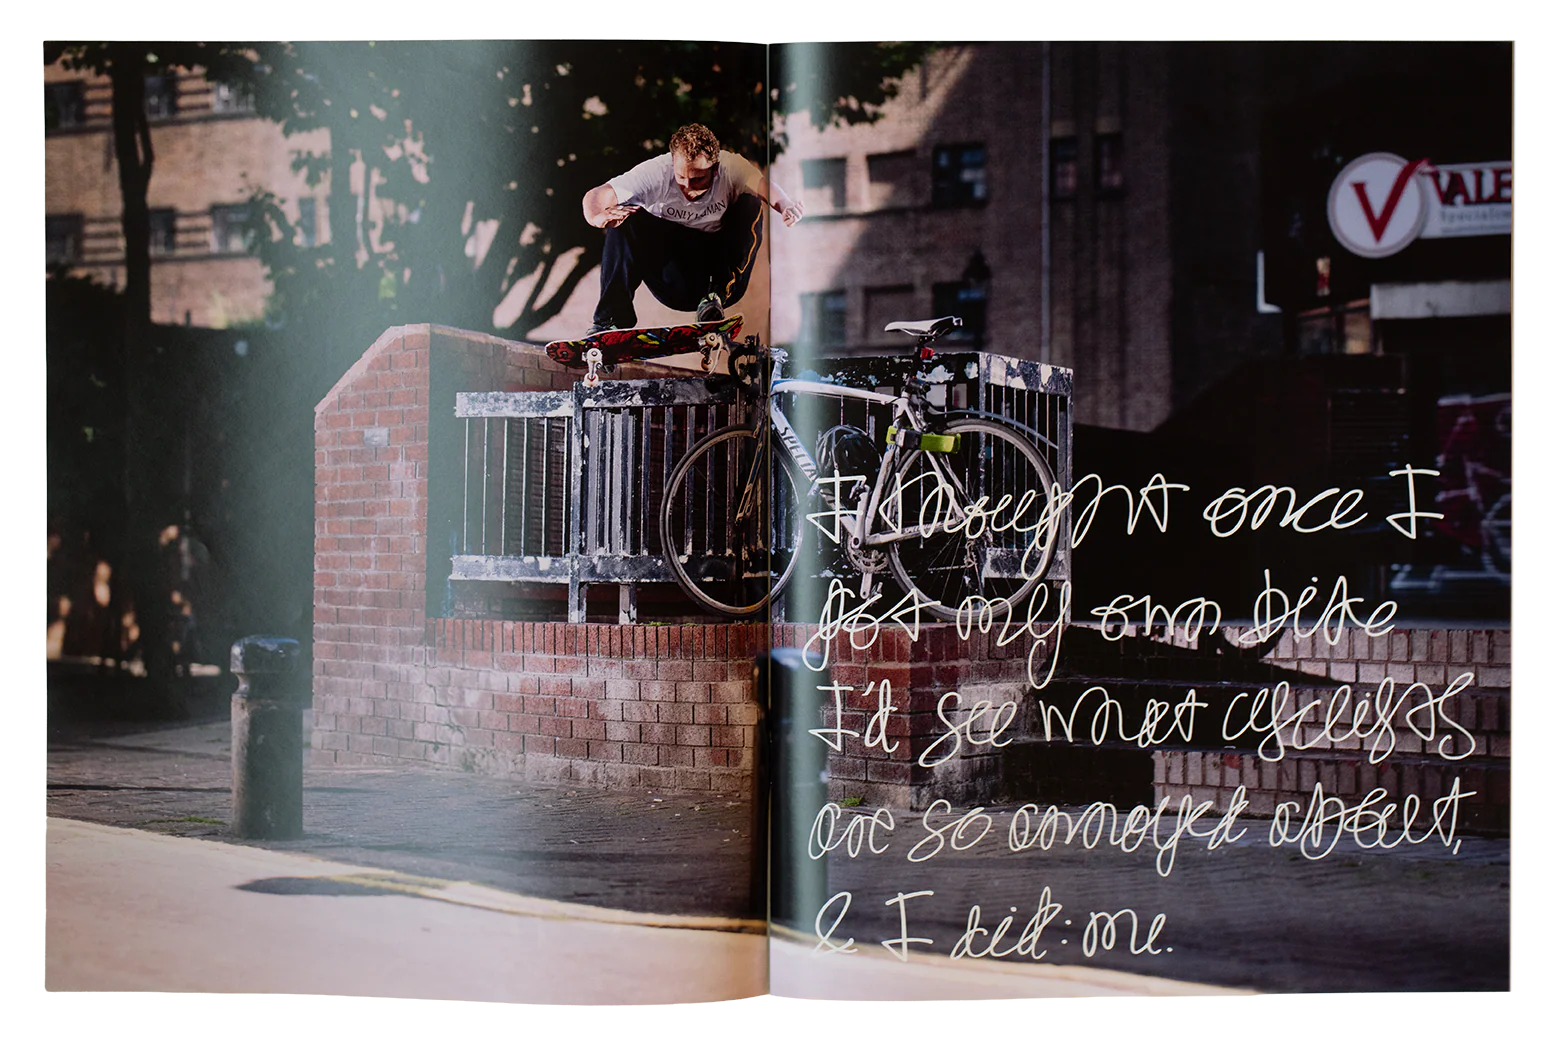 ONLY HUMAN
VALE
Specialis
SPECIA
I thought once I
got my own bike
I'd see what cyclists
are so annoyed about,
& I did: me.